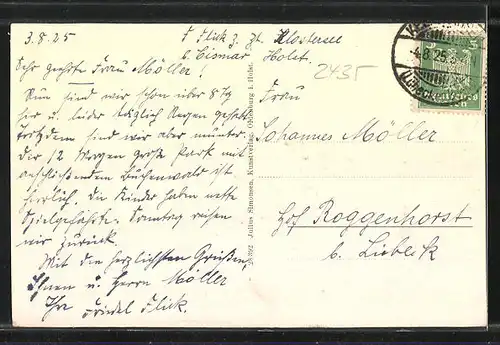 3.8.25
F Flick z. Zt. Klostersee
b. Cismar Holst.
Sehr geehrte Frau Möller!
Nun sind wir schon über 8 Tg
hier u. leider täglich Regen gehabt
trotzdem sind wir aber munter.
Der 12 Morgen große Park mit
anschließendem Buchenwald ist
herrlich, die Kinder haben nette
Spielgefährte. Sonntag reisen
wir zurück.
Mit den herzlichsten Grüßen,
Ihnen u. Herrn Möller
Ihre Friedel Flick.
2435
Frau
Johannes Möller
Hof Roggenhorst
b. Lübeck
28392 Julius Simonsen, Kunstverlag, Oldenburg i. Holst.
-4.8.25
(Lübeck)
5